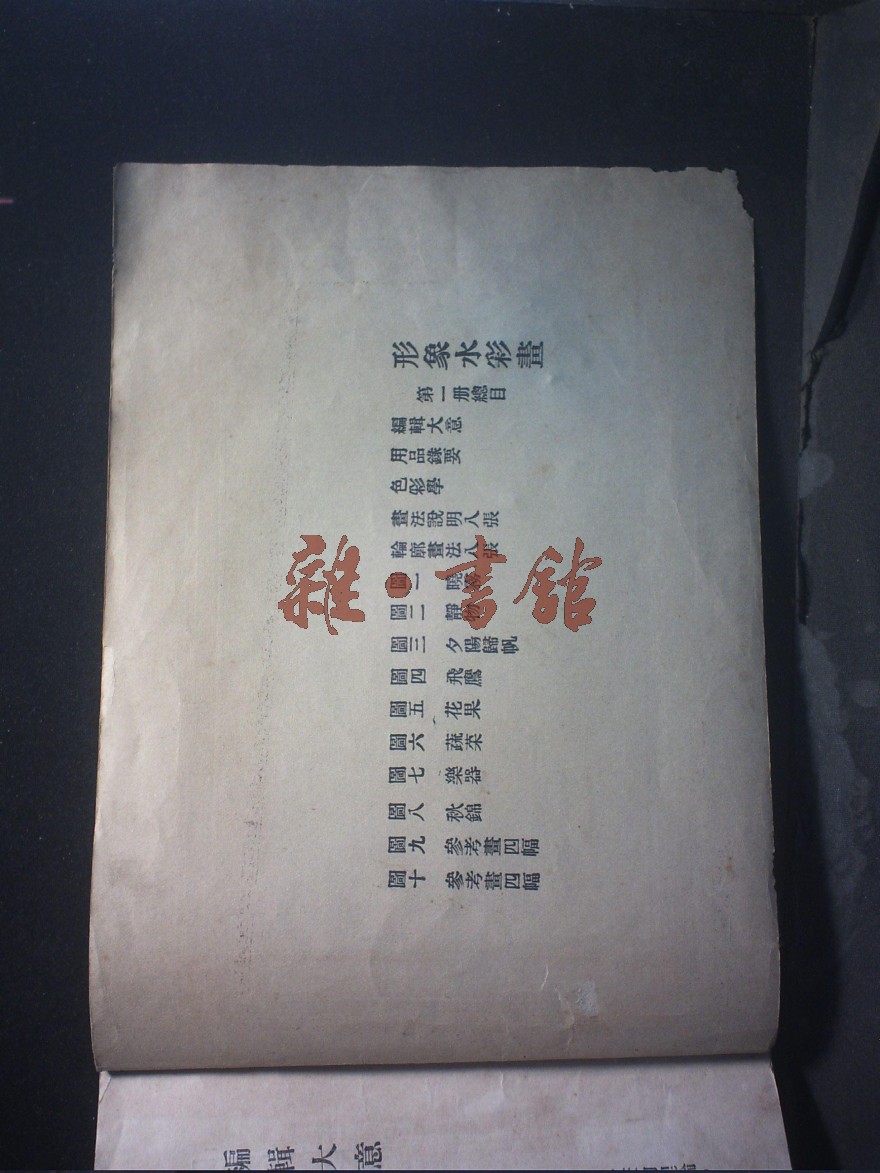 形象水彩畫
第一册總目
編輯大意
用品錄要
色彩學
畫法說明八張
輪廓畫法八張
圖一 曉
圖二 靜物
圖三 夕陽歸帆
圖四 飛鷹
圖五 花果
圖六 蔬菜
圖七 樂器
圖八 秋錦
圖九 參考畫四幅
圖十 參考畫四幅
雜·書館
編輯大意